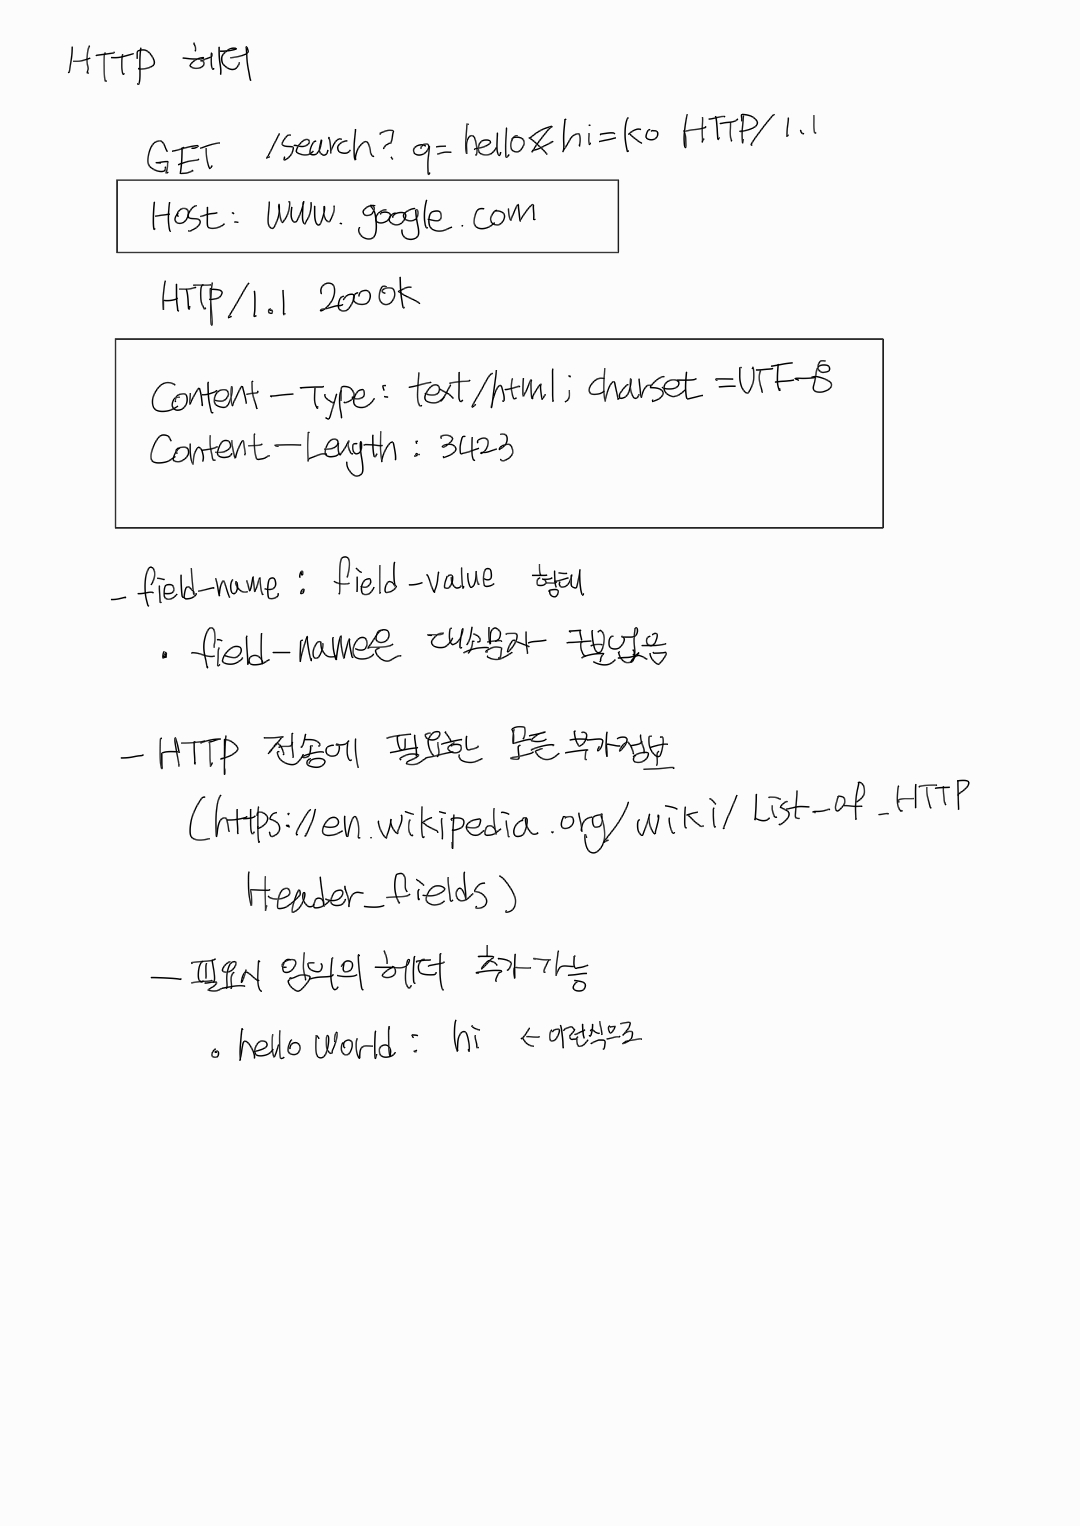 HTTP 헤더
GET /search? q=hello&hi=ko HTTP/1.1
Host: www.google.com
HTTP/1.1 200 Ok
Content-Type: text/html; charset=UTF-8
Content-Length: 3423
- field-name: field-value 형태
• field-name은 대소문자 구분없음
- HTTP 전송에 필요한 모든 부가정보
(https://en.wikipedia.org/wiki/List_of_HTTP
Header_fields)
- 필요시 임의의 헤더 추가가능
• hello world: hi ← 이런식으로